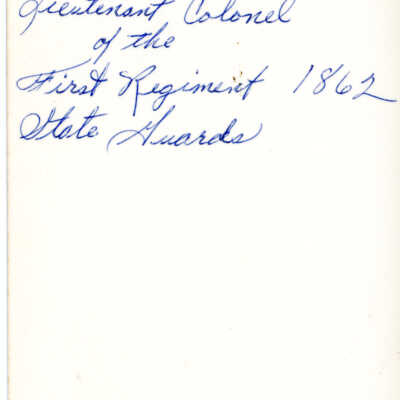 Lieutenant Colonel
of the
First Regiment 1862
State Guards